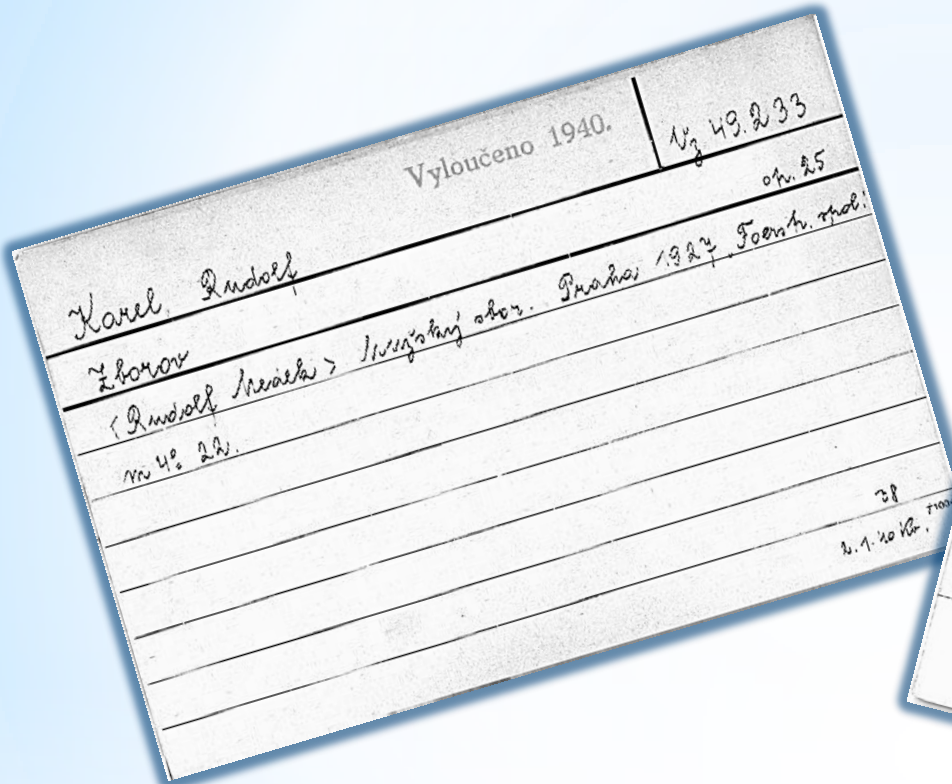 Vyloučeno 1940.
Vz 49.233
Karel, Rudolf
Zborov op. 25
(Rudolf Medek) Mužský sbor. Praha 1927, Foerstr. spol.
m 4º 22.
28
2.1.40 Kr.